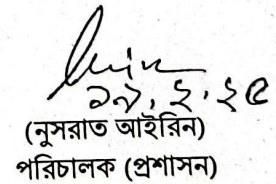 ১৯.২.২৫
(নুসরাত আইরিন)
পরিচালক (প্রশাসন)